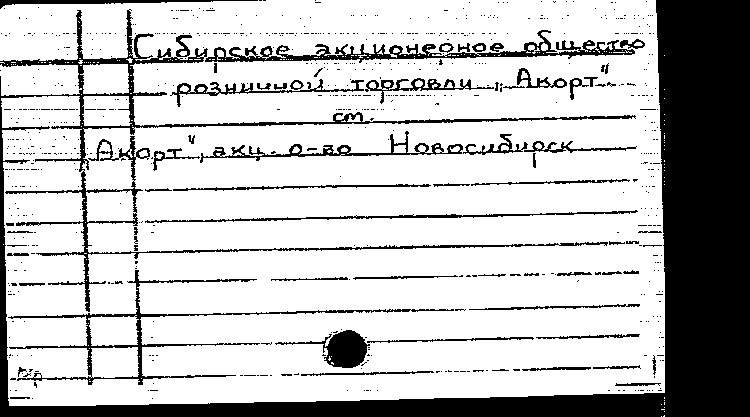 Сибирское акционерное общество
розничной торговли „Акорт“
см.
„Акорт“, акц. о-во Новосибирск